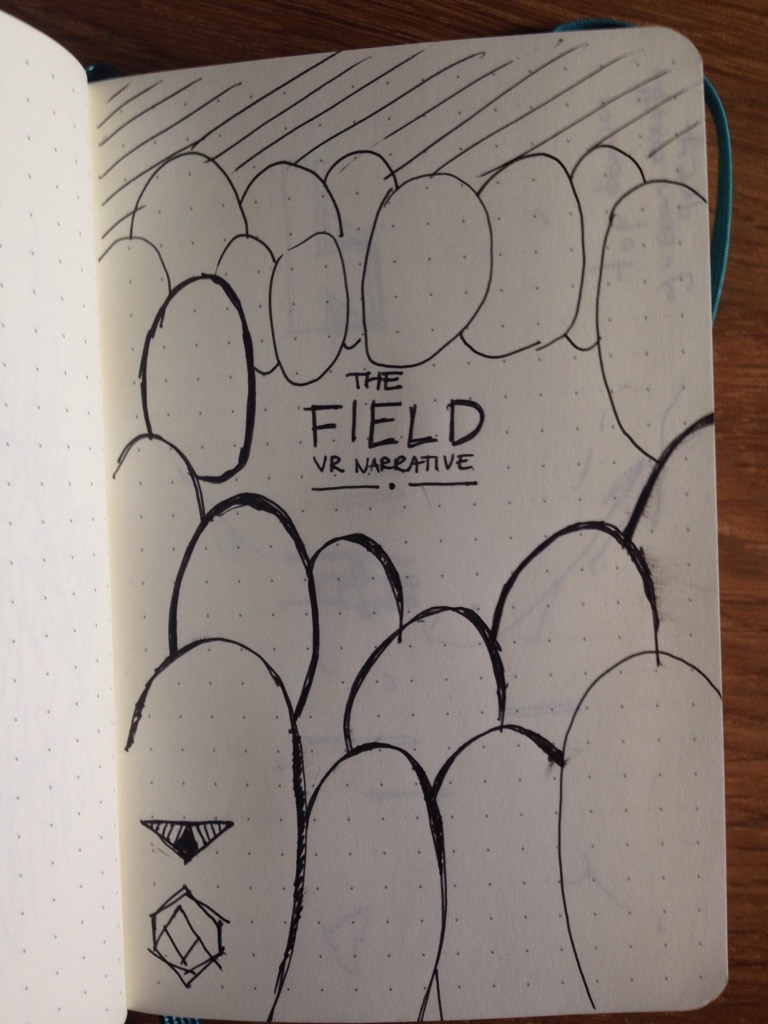 THE
FIELD
VR NARRATIVE